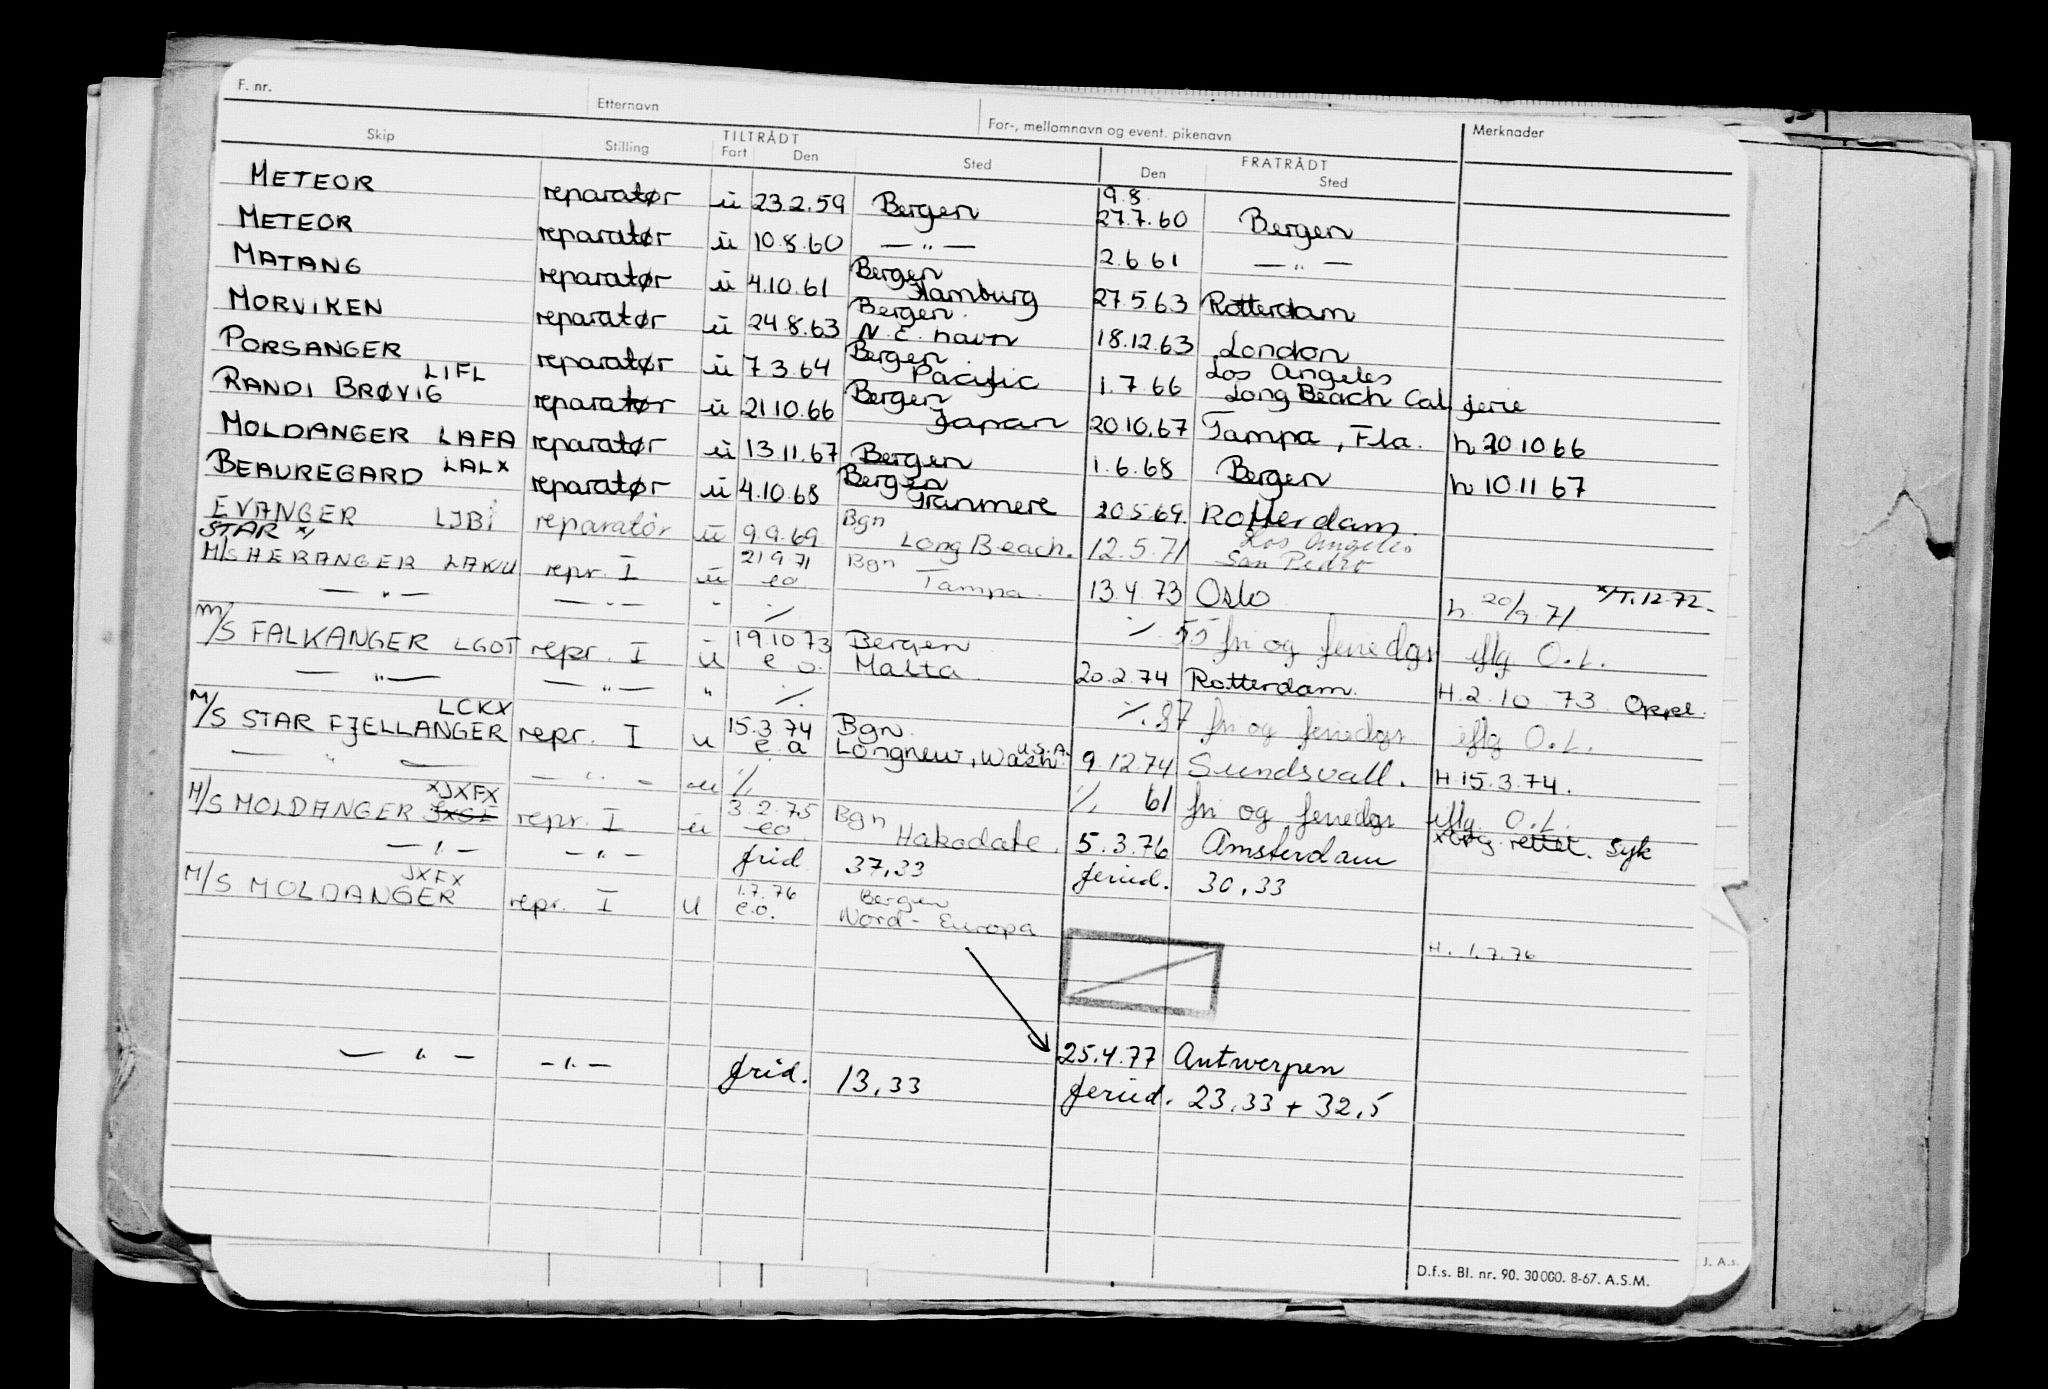 F. nr. Etternavn For-, mellomnavn og event. pikenavn Merknader
Skip Stilling TILTRÅDT Fart Den Sted FRATRÅDT Den Sted
METEOR reparatør ü 23.2.59 Bergen 9.8. 27.7.60 Bergen
METEOR reparatør ü 10.8.60 — " — 2.6.61 — " —
MATANG reparatør ü 4.10.61 Bergen Hamburg 27.5.63 Rotterdam
MORVIKEN reparatør ü 24.8.63 Bergen N.E. havn 18.12.63 London
PORSANGER reparatør ü 7.3.64 Bergen Pacific 1.7.66 Los Angeles Long Beach Cal. ferie
RANDI BRØVIG LIFL reparatør ü 21.10.66 Bergen Japan 20.10.67 Tampa, Fla. h 20.10.66
MOLDANGER LAFA reparatør ü 13.11.67 Bergen 1.6.68 Bergen h 10.11.67
BEAUREGARD LALX reparatør ü 4.10.68 Bergen Granmere 20.5.69 Rotterdam
EVANGER LJBI reparatör ü 9.9.69 Bgn Long Beach. 12.5.71 Los Angeles San Pedro
STAR x/
M/S HERANGER LAKU repr. I ü 21.9.71 eo Bgn Tampa. 13.4.73 Oslo h. 20/9.71 x/T.12.72.
— " — — " — " ./. ./. 55 fri og feriedgr iflg O.L.
M/S FALKANGER LGOT repr. I u 19.10.73 e o. Bergen Malta. 20.2.74 Rotterdam. H.2.10.73. Oppl.
— " — — " — " ./. ./. 87 fri og feriedgr iflg O.L.
M/S STAR FJELLANGER LCKX repr. I u 15.3.74 e.a Bgn. Longview, Wash. U.S.A. 9.12.74 Sundsvall. H.15.3.74.
— " — — " — u ./. ./. 61 fri og feriedgr iflg O.L.
M/S MOLDANGER xJXFX repr. I ü 3.2.75 eo Bgn Hakodate. 5.3.76 Amsterdam rettet. syk
— " — — " — frid 37,33 feried. 30,33
M/S MOLDANGER JXFX repr. I u 1.7.76 e.o. Bergen Nord-Europa H. 1.7.76
25.4.77 Antwerpen
— " — — " — frid. 13,33 feried. 23,33 + 32,5
D.f.s. Bl. nr. 90. 30000. 8-67. A.S.M.
J. A.s.